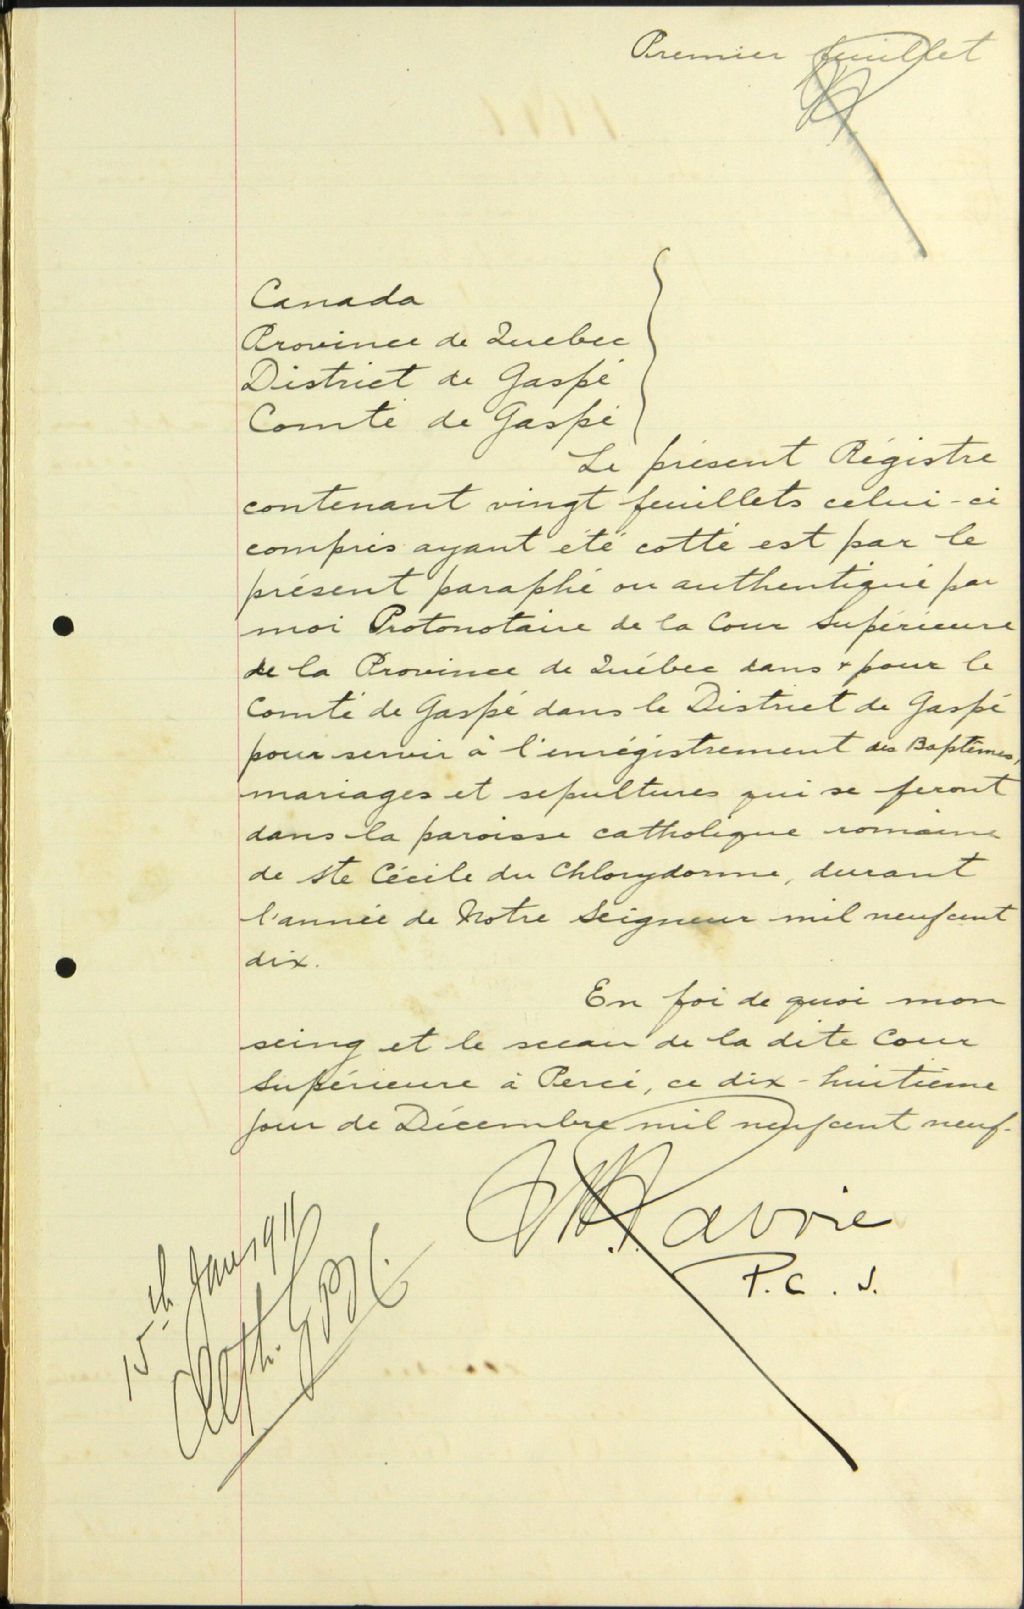 Premier feuillet
Canada
Province de Quebec
District de Gaspé
Comté de Gaspé
Le présent Régistre
contenant vingt feuillets celui-ci
compris ayant été cotté est par le
présent paraphé ou authentiqué par
moi Protonotaire de la Cour Supérieure
de la Province de Québec dans & pour le
Comté de Gaspé dans le District de Gaspé
pour servir à l'enrégistrement des Baptêmes,
mariages et sépultures qui se feront
dans la paroisse catholique romaine
de Ste Cécile du Chlorydorme, durant
l'année de Notre Seigneur mil neuf cent
dix.
En foi de quoi mon
seing et le sceau de la dite Cour
Supérieure à Percé, ce dix-huitième
jour de Décembre mil neuf cent neuf.
Lavoie
P.C.S.
15th Jan 1911